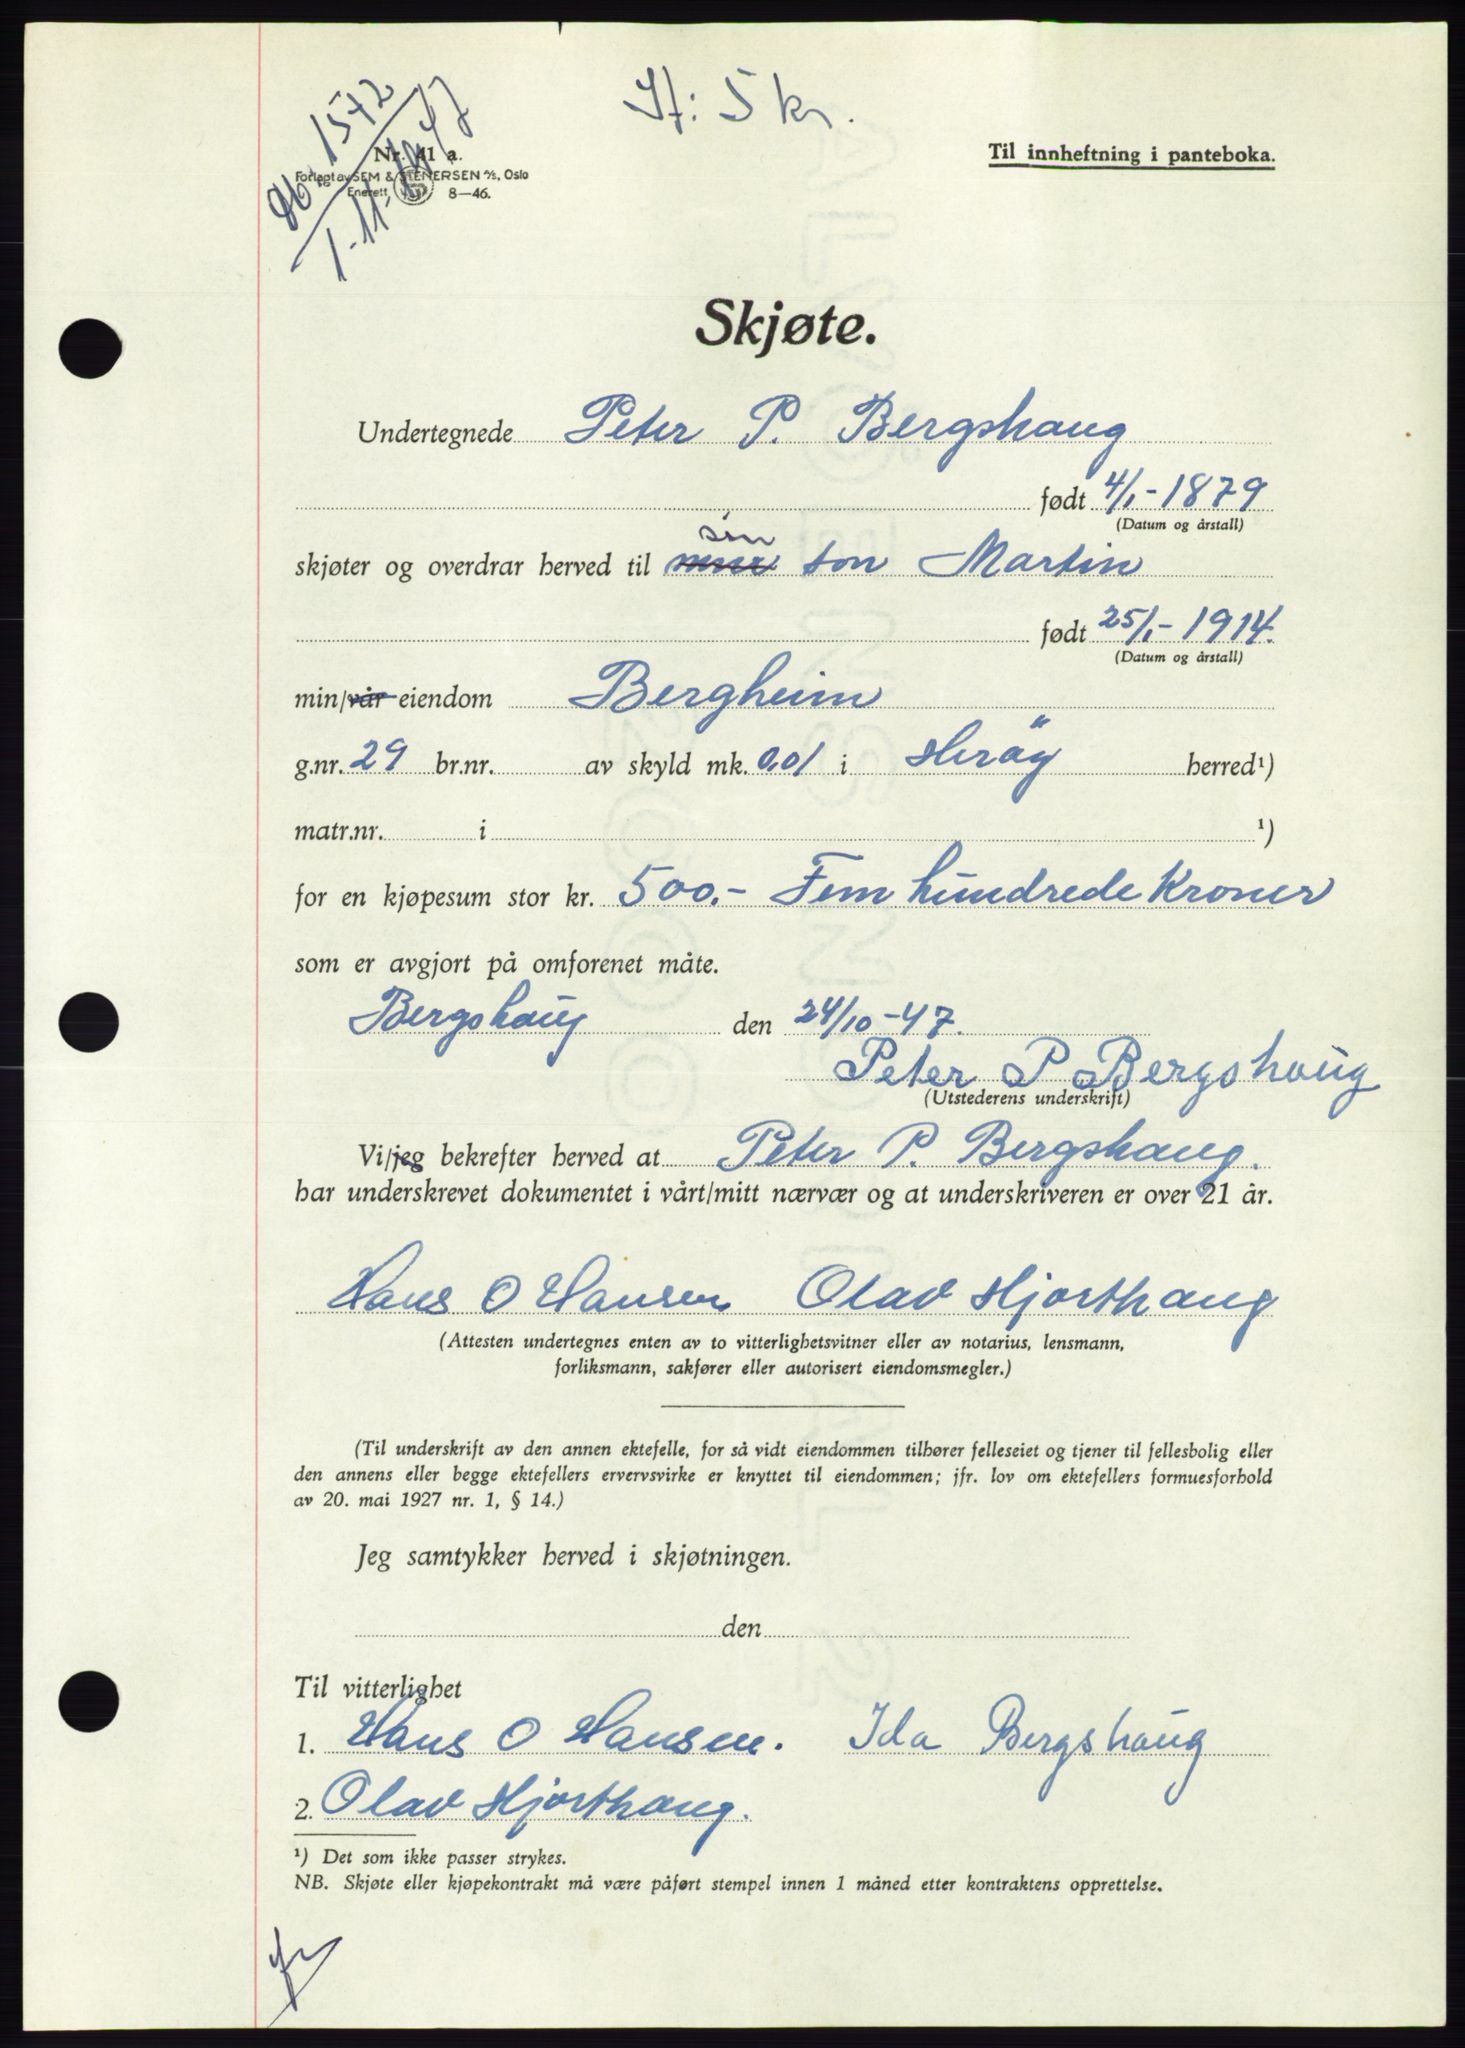 St: 5 kr.
Db. 1572
1-11-1947
Nr. 41 a.
Til innheftning i panteboka.
Forlagt av SEM & STENERSEN A/S, Oslo
Enerett 8—46.
Skjøte.
Undertegnede Peter P. Bergshaug
født 4/1-1879
sin
skjøter og overdrar herved til son Martin
født 25/1-1914.
min/vår eiendom Bergheim
g.nr. 29 br.nr. av skyld mk. 0,01 i Herøy herred¹)
matr.nr. i ¹)
for en kjøpesum stor kr. 500.- Fem hundrede Kroner
som er avgjort på omforenet måte.
Bergshaug den 24/10-47.
Peter P Bergshaug
(Utstederens underskrift)
Vi/jeg bekrefter herved at Peter P. Bergshaug.
har underskrevet dokumentet i vårt/mitt nærvær og at underskriveren er over 21 år.
Hans O Hansen Olav Hjorthaug
(Attesten undertegnes enten av to vitterlighetsvitner eller av notarius, lensmann,
forliksmann, sakfører eller autorisert eiendomsmegler.)
(Til underskrift av den annen ektefelle, for så vidt eiendommen tilhører felleseiet og tjener til fellesbolig eller
den annens eller begge ektefellers ervervsvirke er knyttet til eiendommen; jfr. lov om ektefellers formuesforhold
av 20. mai 1927 nr. 1, § 14.)
Jeg samtykker herved i skjøtningen.
den
Til vitterlighet
1. Hans O Hansen. Ida Bergshaug
2. Olav Hjorthaug.
¹) Det som ikke passer strykes.
NB. Skjøte eller kjøpekontrakt må være påført stempel innen 1 måned etter kontraktens opprettelse.